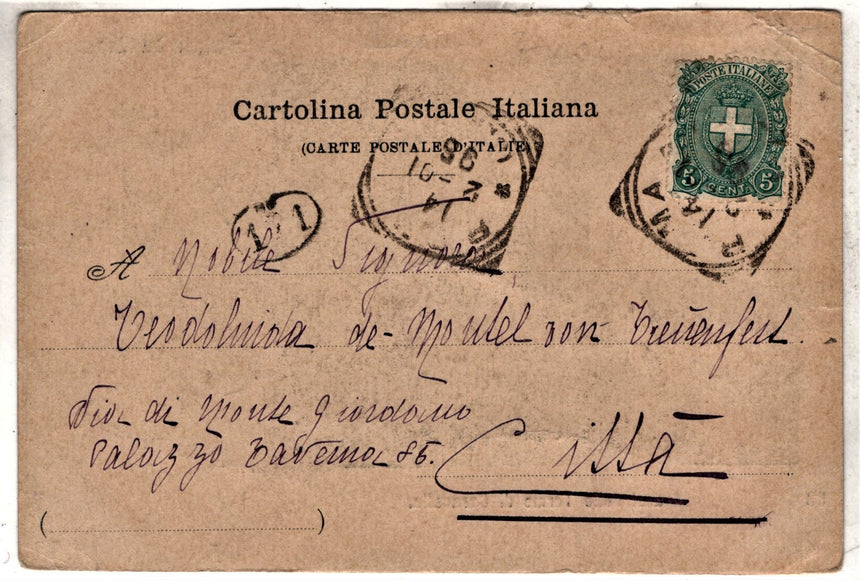 POSTE ITALIANE
Cartolina Postale Italiana
(CARTE POSTALE D'ITALIE)
5 CENT. 5
ROMA
14
2
96
A Nobile Signora
Teodolinda de Montel von Treuenfest.
Via di Monte Giordano
Palazzo Taverna 86.
Città
( )